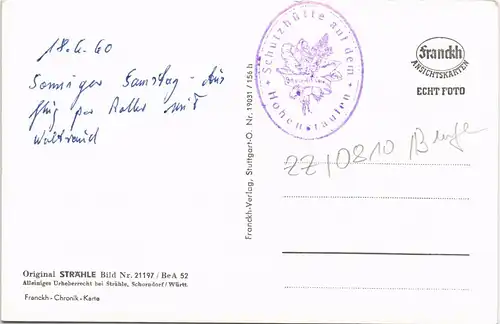 18.6.60
Sonniger Samstag - Aus
flug per Roller mit
Waltraud
Original STRÄHLE Bild Nr. 21197 / BeA 52
Alleiniges Urheberrecht bei Strähle, Schorndorf / Württ.
Franckh-Chronik-Karte
Franckh-Verlag, Stuttgart-O. Nr. 19031 / 156 b
Schutzhütte auf dem
Hohenstaufen
Franckh
ANSICHTSKARTEN
ECHT FOTO
ZZ/0810